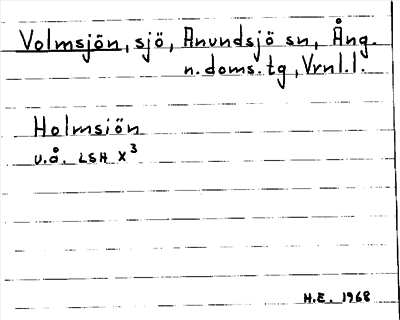 Volmsjön, sjö, Anundsjö sn, Ång.
n.doms.tg, Vrnl.l.
Holmsjön
u.å. LSH X³
H.E. 1968